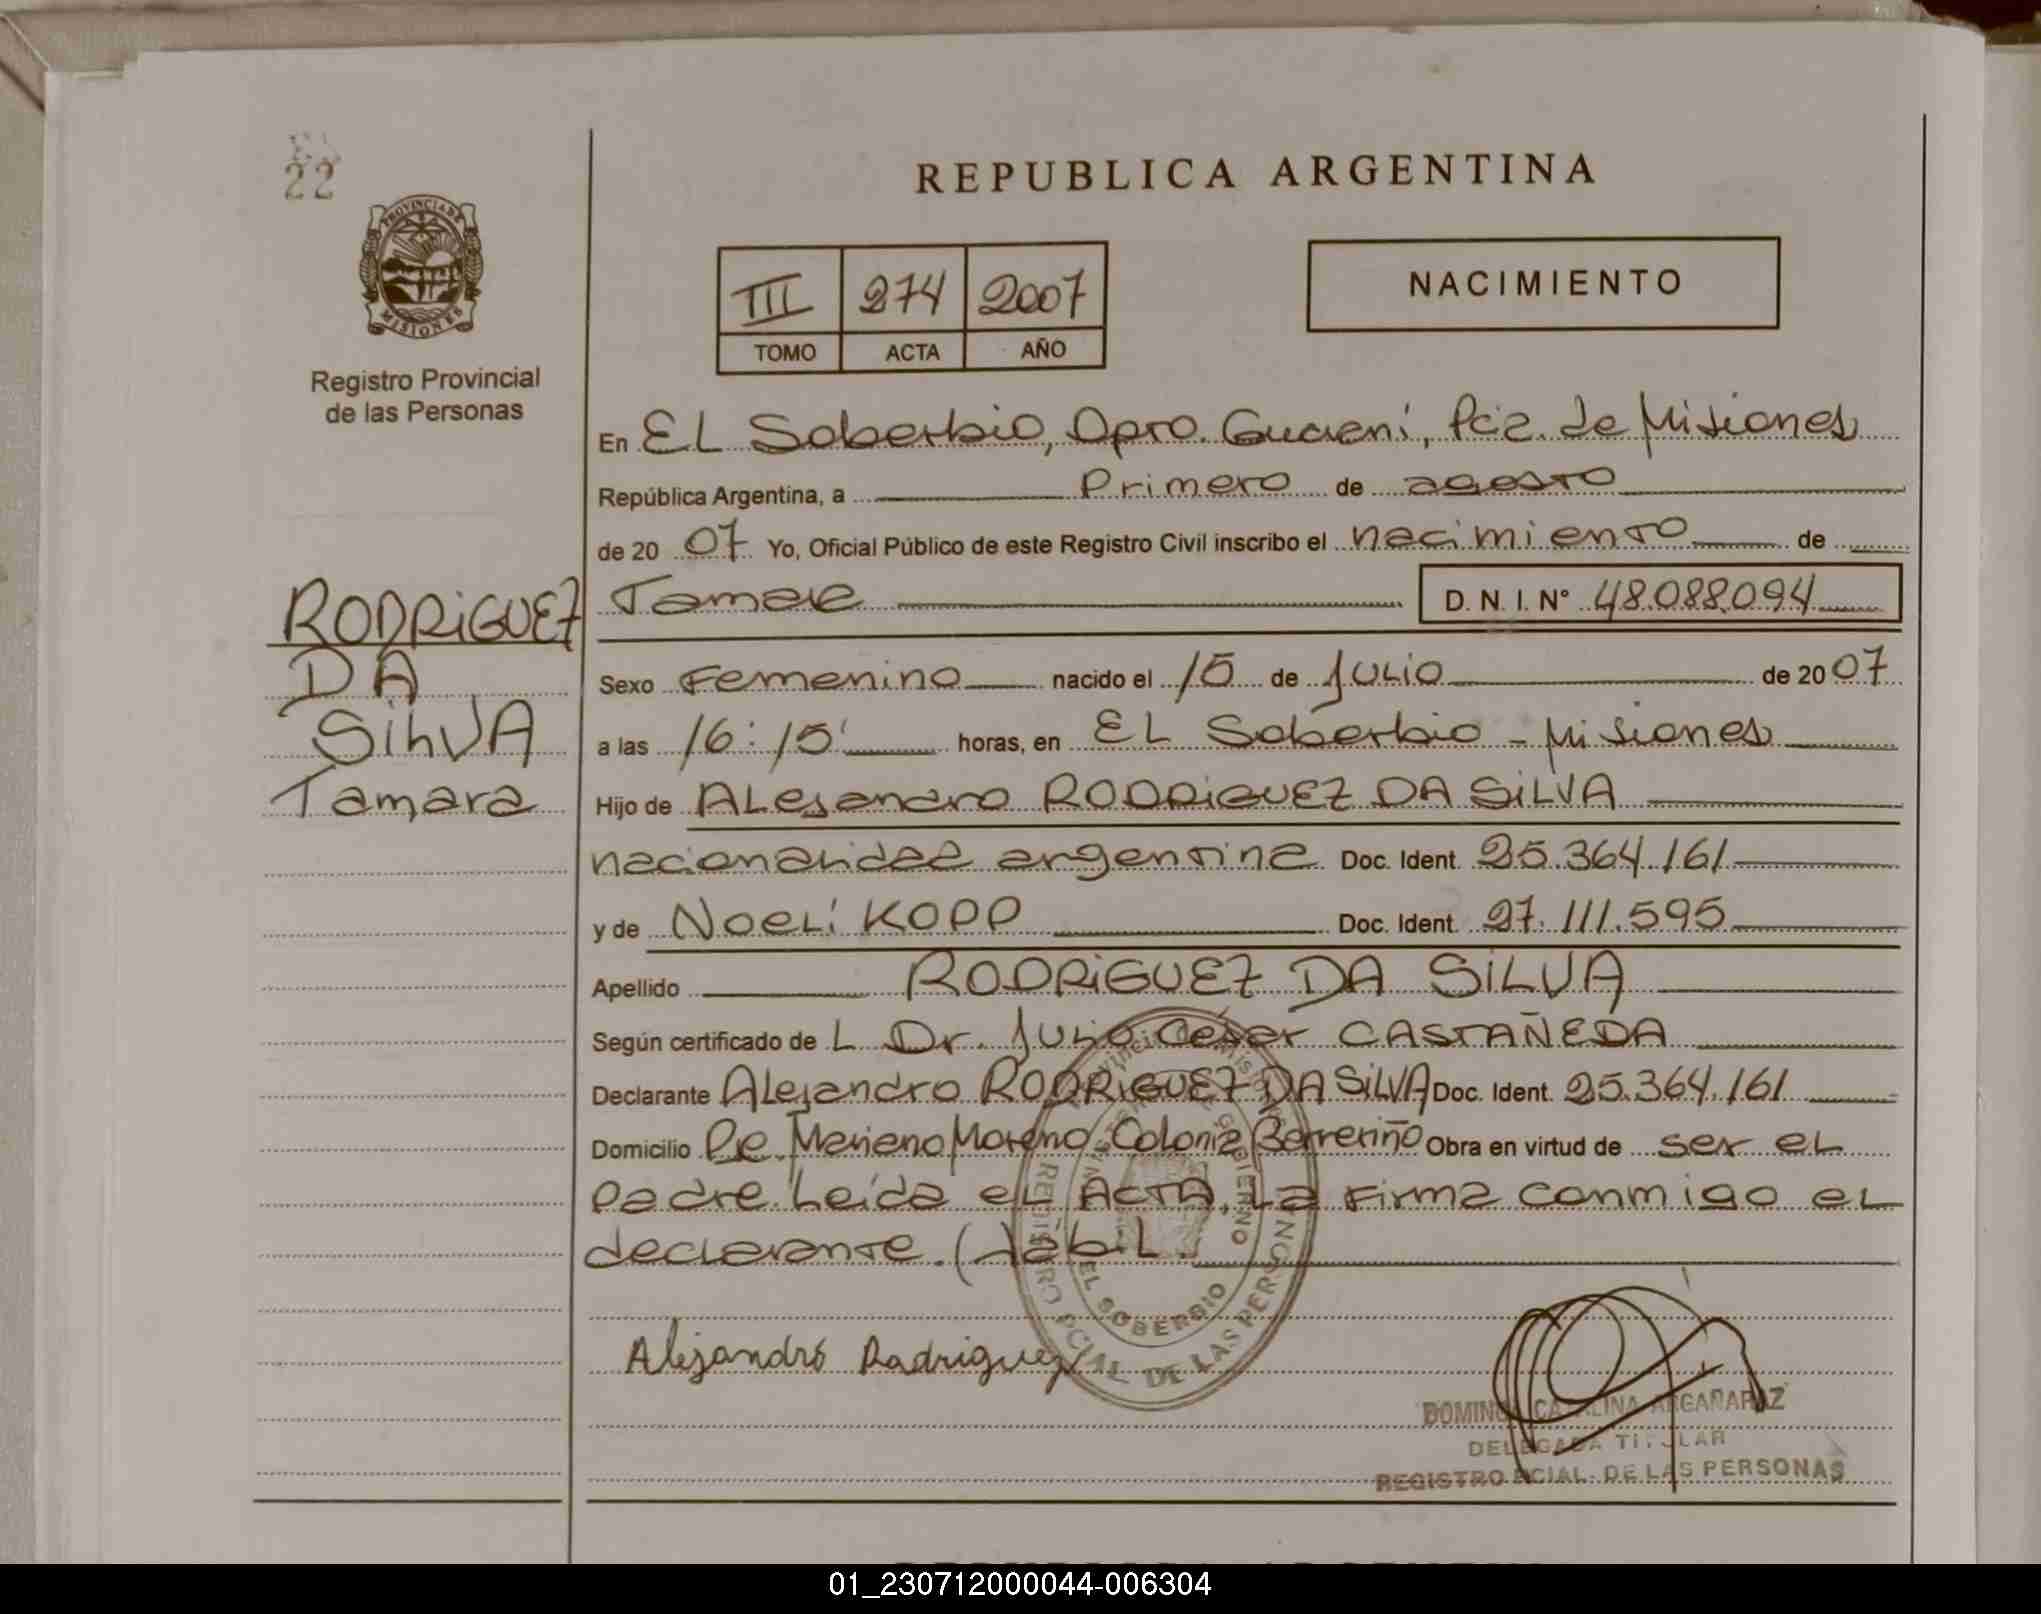 22
PROVINCIA DE
MISIONES
Registro Provincial
de las Personas
RODRIGUEZ
DA
SILVA
Tamara
REPUBLICA ARGENTINA
III 274 2007
TOMO ACTA AÑO
NACIMIENTO
En EL Soberbio, Dpto. Guaraní, Pcia. de Misiones
República Argentina, a Primero de agosto
de 20 07 Yo, Oficial Público de este Registro Civil inscribo el nacimiento de
Tamara D. N. I. N° 48.088.094
Sexo Femenino nacido el 15 de Julio de 20 07
a las 16:15' horas, en EL Soberbio - Misiones
Hijo de Alejandro RODRIGUEZ DA SILVA
nacionalidad argentina Doc. Ident. 25.364.161
y de Noelí KOPP Doc. Ident. 27.111.595
Apellido RODRIGUEZ DA SILVA
Según certificado de L Dr. Julio César CASTAÑEDA
Declarante Alejandro RODRIGUEZ DA SILVA Doc. Ident. 25.364.161
Domicilio Mariano Moreno Colonia Obra en virtud de ser el
padre. Leída el ACTA, La Firma conmigo el
declarante. Hábil.
REGISTRO PCIAL DE LAS PERSONAS
EL SOBERBIO
Alejandro Rodriguez
DELEGADA TITULAR
REGISTRO PCIAL. DE LAS PERSONAS
01_230712000044-006304